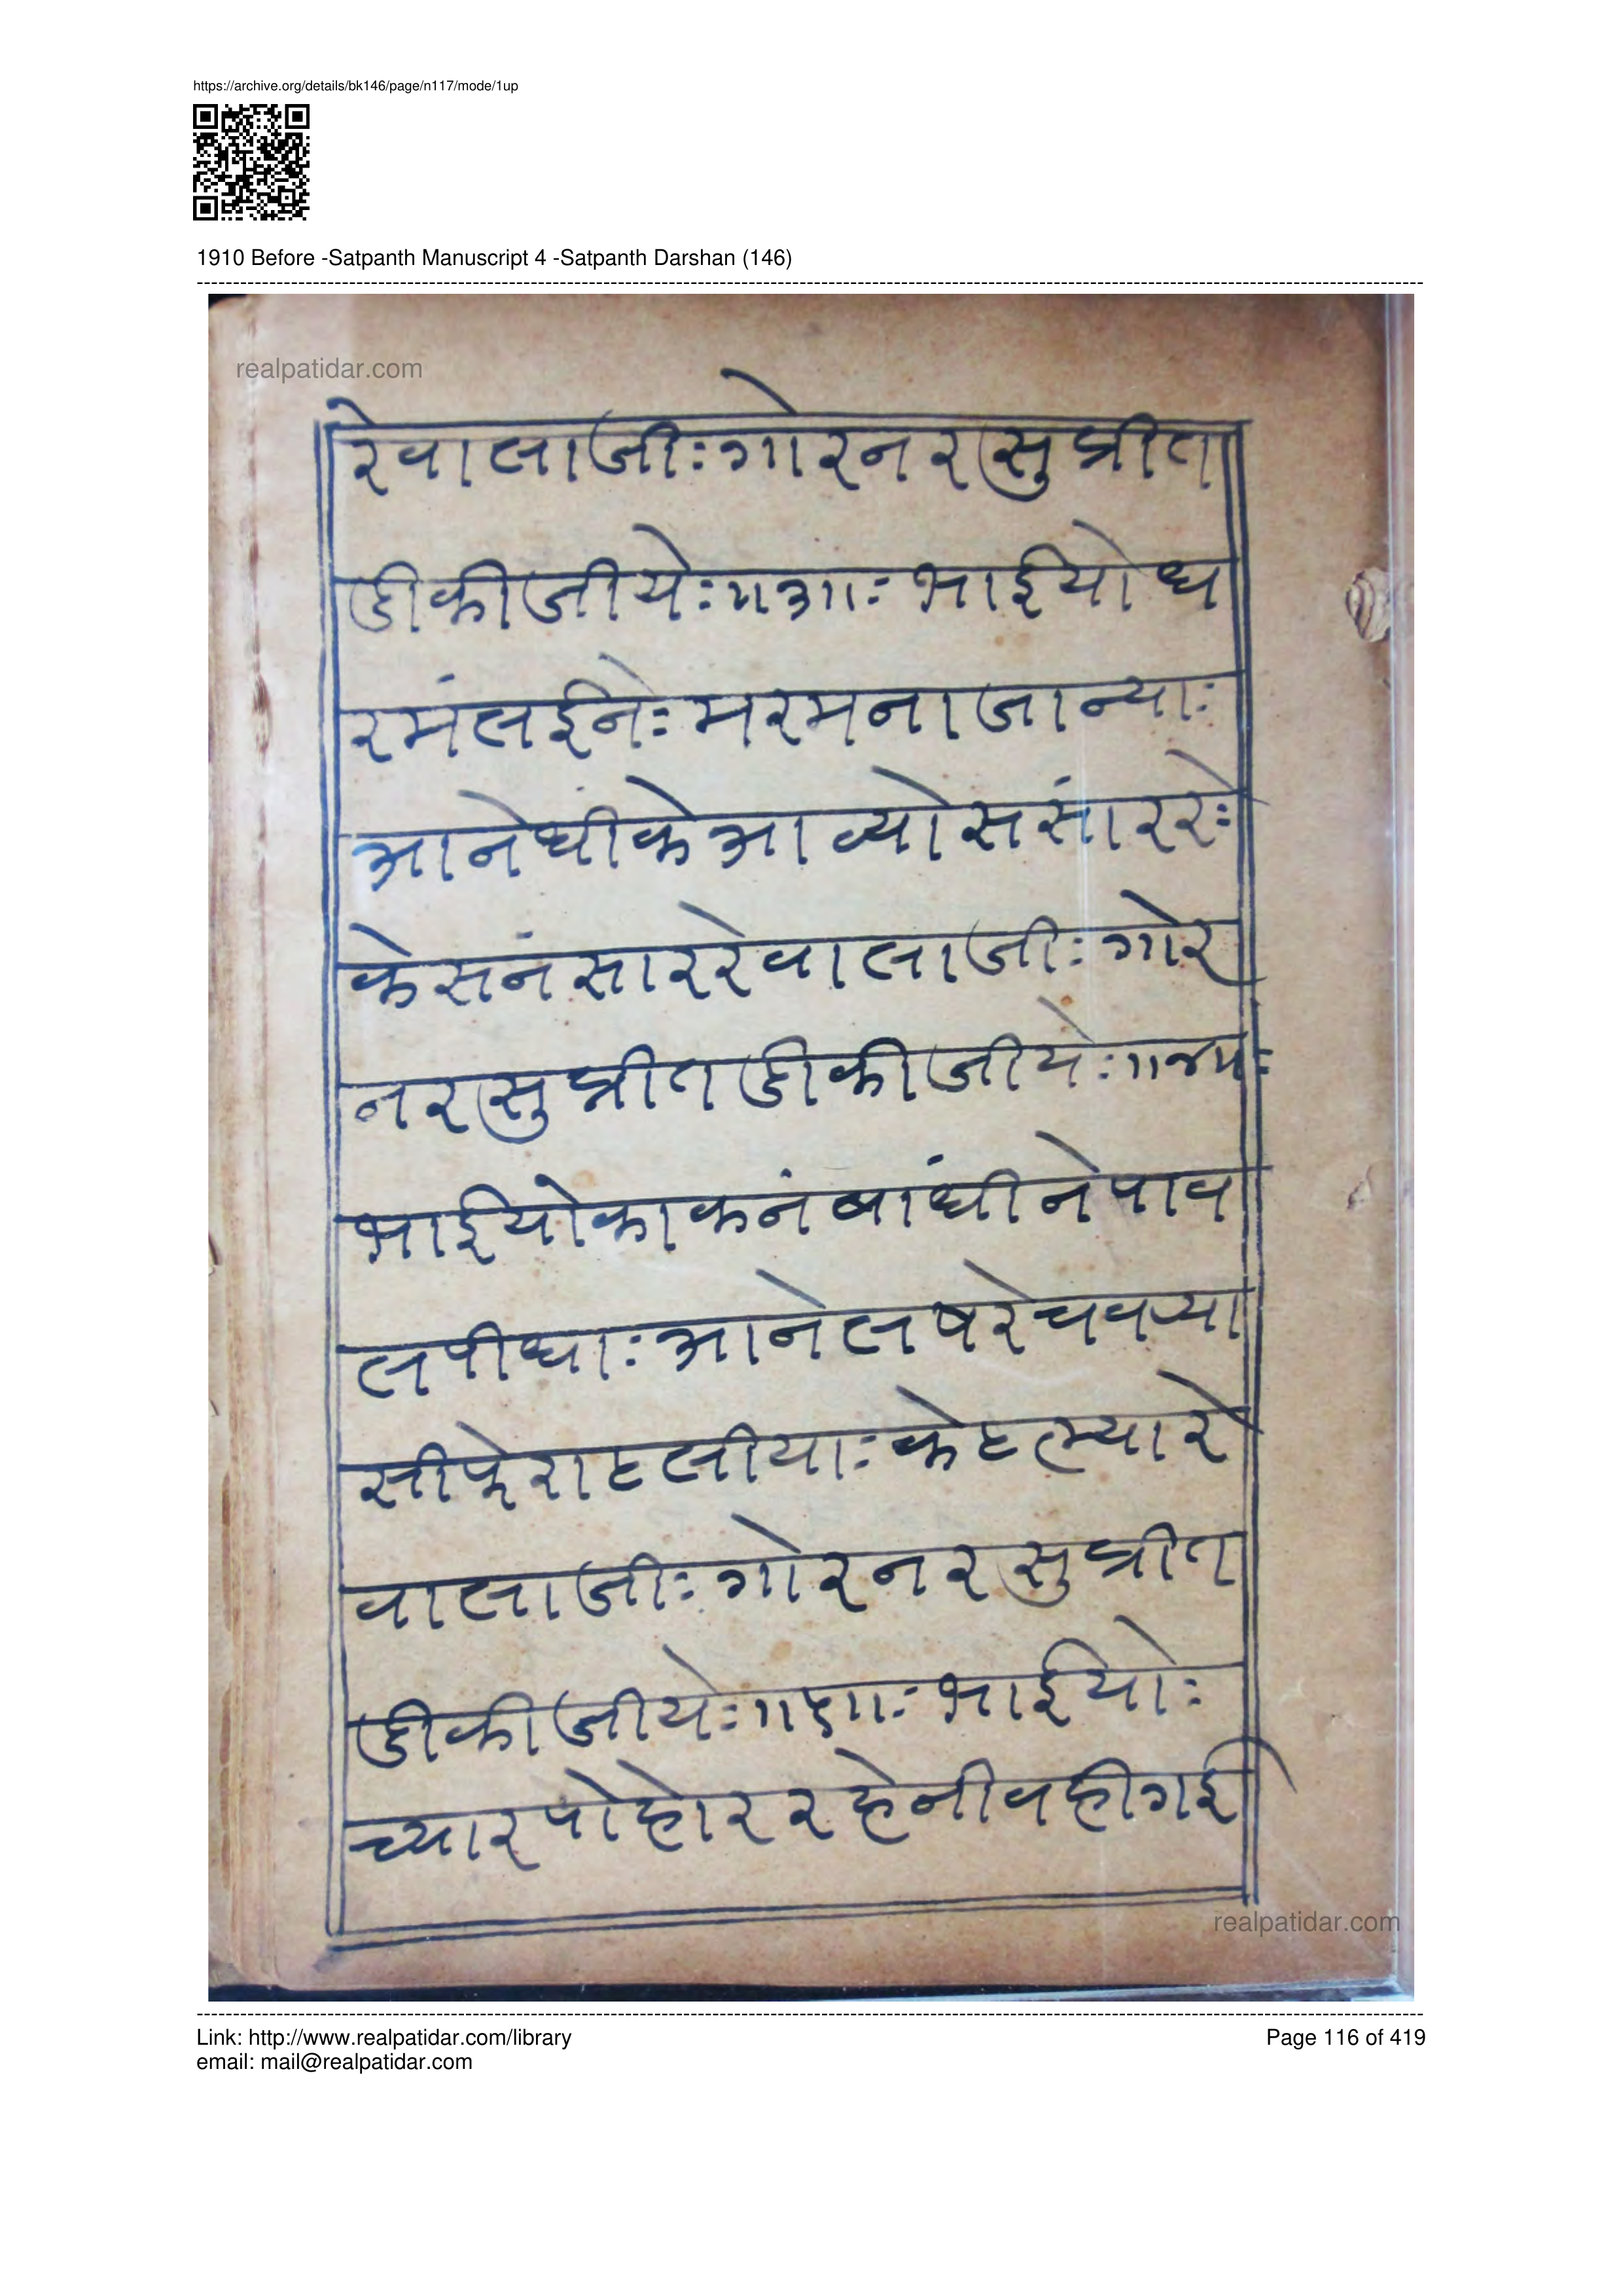 https://archive.org/details/bk146/page/n117/mode/1up
1910 Before -Satpanth Manuscript 4 -Satpanth Darshan (146)
realpatidar.com
रे वा ला जीः गो र न र सु प्रीत
डी की जी येः ॥३॥ः भाई यो ध
र मं ल ई नेः म र म ना जा न्याः
आ ने धी के आ व्यो स सां र रेः
के स नं सा र रे वा ला जीः गो र
न र सु प्रीत डी की जी येः ॥४॥ः
भाई यो का क नं बां धी ने पा व
ल पी धाः आ ने ल ष रे च व र्‍या
सी फे रा ह ली याः के ह ल्या रे
वा ला जीः गो र न र सु प्रीत
डी की जी येः ॥५॥ः भाई योः
च्या र पो हो र र हे नी व ही ग ई
realpatidar.com
Link: http://www.realpatidar.com/library
Page 116 of 419
email: mail@realpatidar.com